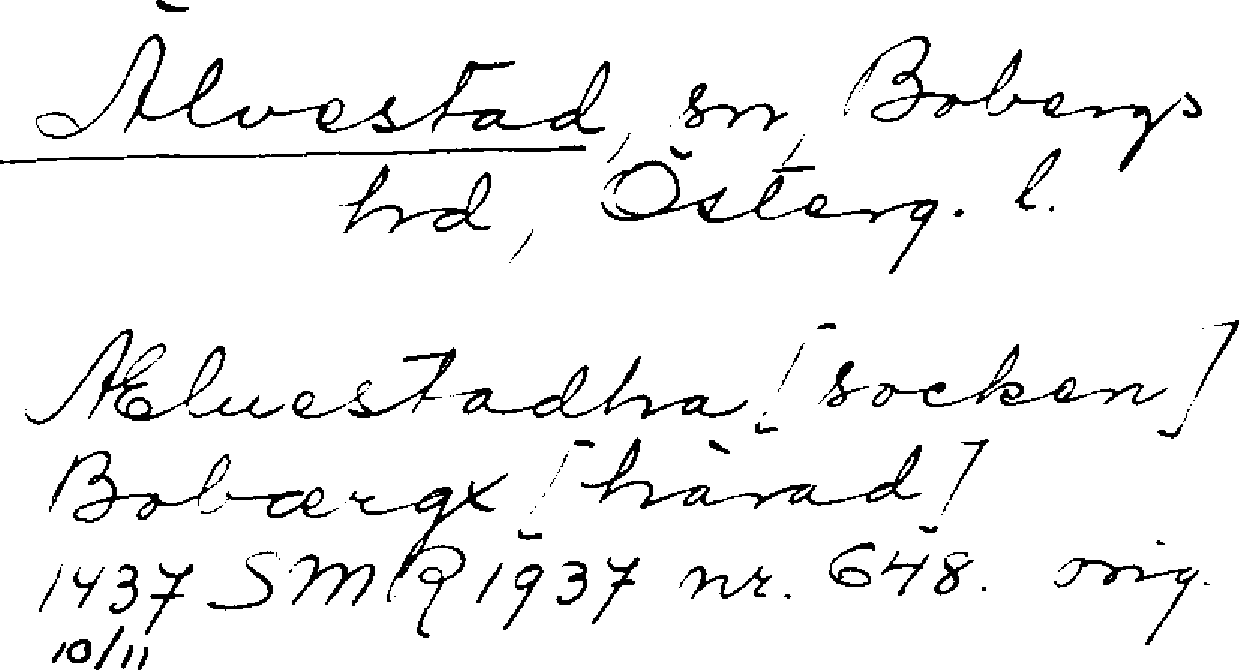 Älvestad, sn, Bobergs
hrd, Österg. l.
Æluestadha [socken]
Bobærgx [härad]
1437 SMR 1937 nr. 648. orig.
10/11